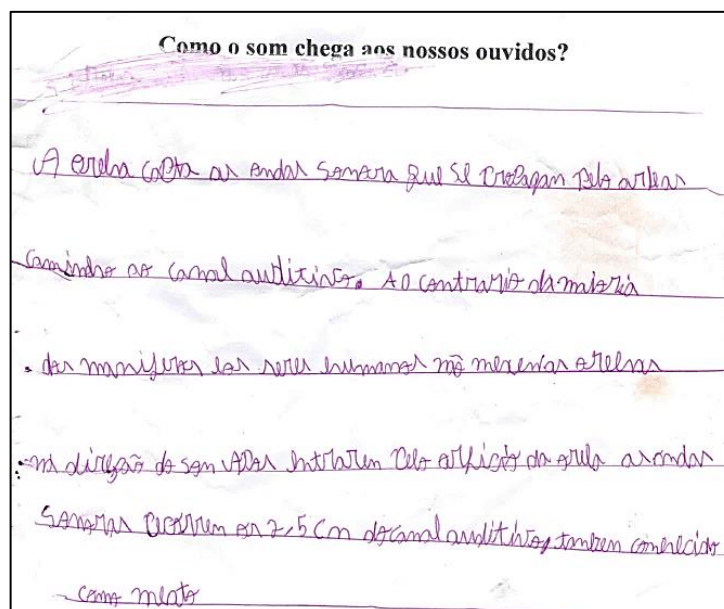 Como o som chega aos nossos ouvidos?
A orelha capta as ondas sonora que se propagan pelo ar
caminho ao canal auditivo. Ao contrario da maioria
das maniferos los seres humanos nõ mexem as orelhas
na direção do son Apos entrarem pelo orificio da orela as ondas
sonoras pecorrem os 2,5 cm do canal auditivo, tanben conhecido
como meato